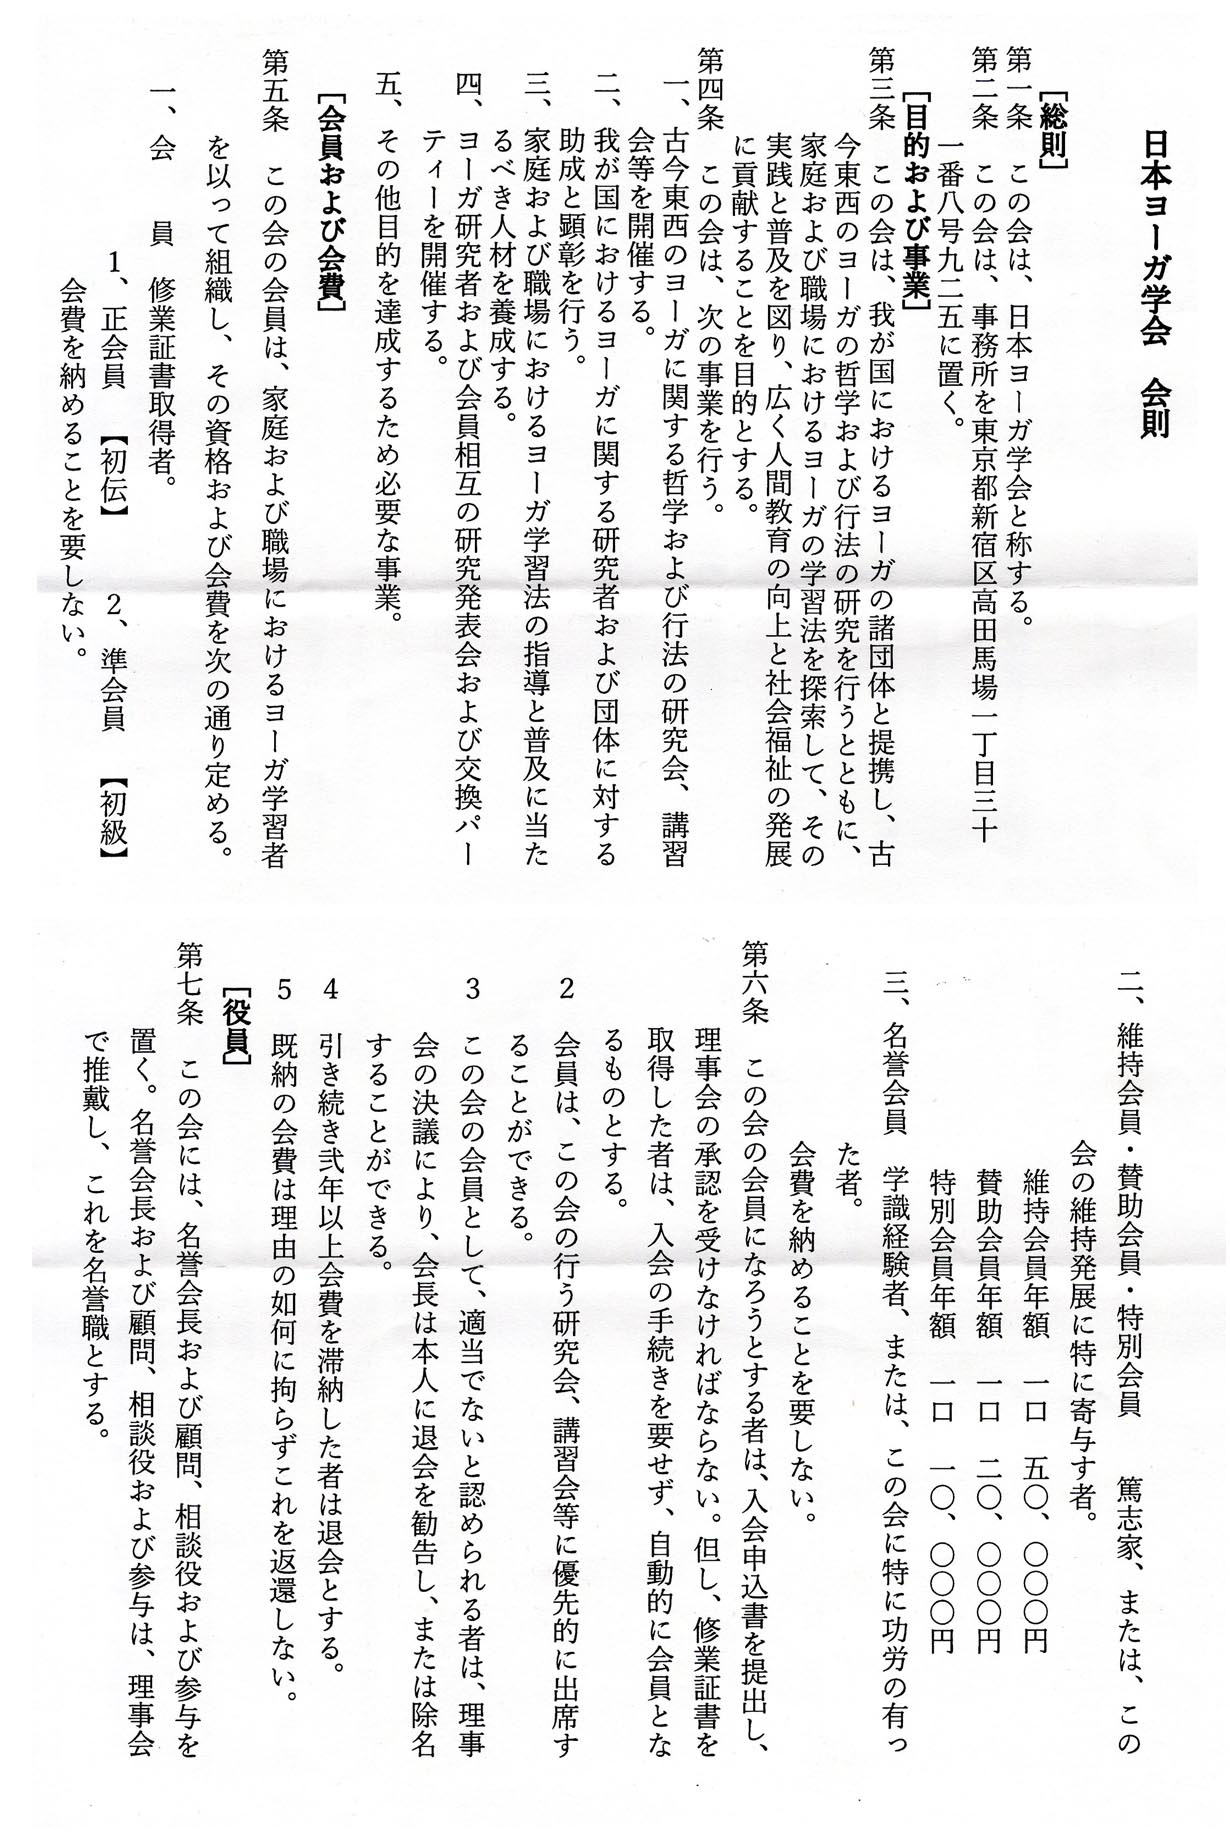 日本ヨーガ学会　会則
［総則］
第一条　この会は、日本ヨーガ学会と称する。
第二条　この会は、事務所を東京都新宿区高田馬場一丁目三十
一番八号九二五に置く。
［目的および事業］
第三条　この会は、我が国におけるヨーガの諸団体と提携し、古
今東西のヨーガの哲学および行法の研究を行うとともに、
家庭および職場におけるヨーガの学習法を探索して、その
実践と普及を図り、広く人間教育の向上と社会福祉の発展
に貢献することを目的とする。
第四条　この会は、次の事業を行う。
一、古今東西のヨーガに関する哲学および行法の研究会、講習
会等を開催する。
二、我が国におけるヨーガに関する研究者および団体に対する
助成と顕彰を行う。
三、家庭および職場におけるヨーガ学習法の指導と普及に当た
るべき人材を養成する。
四、ヨーガ研究者および会員相互の研究発表会および交換パー
ティーを開催する。
五、その他目的を達成するため必要な事業。
［会員および会費］
第五条　この会の会員は、家庭および職場におけるヨーガ学習者
を以って組織し、その資格および会費を次の通り定める。
一、会　員　修業証書取得者。
1、正会員　【初伝】　2、準会員　【初級】
会費を納めることを要しない。
二、維持会員・賛助会員・特別会員　篤志家、または、この
会の維持発展に特に寄与す者。
維持会員年額　一口　五〇、〇〇〇円
賛助会員年額　一口　二〇、〇〇〇円
特別会員年額　一口　一〇、〇〇〇円
三、名誉会員　学識経験者、または、この会に特に功労の有っ
た者。
会費を納めることを要しない。
第六条　この会の会員になろうとする者は、入会申込書を提出し、
理事会の承認を受けなければならない。但し、修業証書を
取得した者は、入会の手続きを要せず、自動的に会員とな
るものとする。
2　会員は、この会の行う研究会、講習会等に優先的に出席す
ることができる。
3　この会の会員として、適当でないと認められる者は、理事
会の決議により、会長は本人に退会を勧告し、または除名
することができる。
4　引き続き弐年以上会費を滞納した者は退会とする。
5　既納の会費は理由の如何に拘らずこれを返還しない。
［役員］
第七条　この会には、名誉会長および顧問、相談役および参与を
置く。名誉会長および顧問、相談役および参与は、理事会
で推戴し、これを名誉職とする。